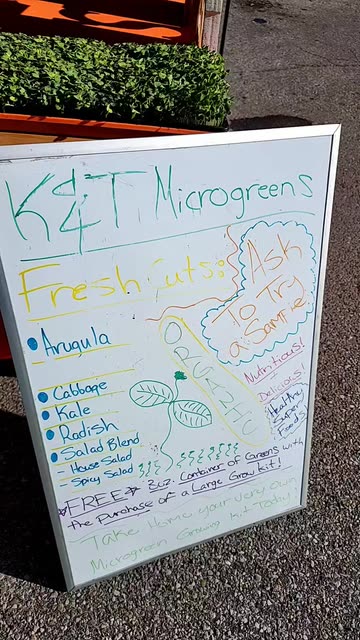 K&T Microgreens
Fresh Cuts:
Ask
To Try
a Sample
Arugula
ORGANIC
Nutritious!
Delicious!
Healthy
Super
Foods
Cabbage
Kale
Radish
Salad Blend
- House Salad
- Spicy Salad
FREE → 3oz. Container of Greens with
the purchase of a Large Grow kit!
Take Home your very own
Microgreen Growing Kit Today!